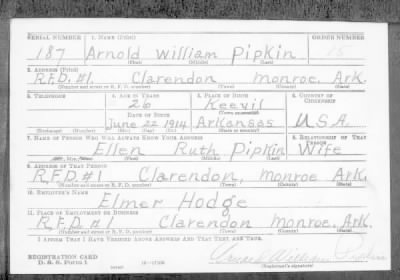 SERIAL NUMBER 1. NAME (Print) ORDER NUMBER
187 Arnold William Pipkin 15
(First) (Middle) (Last)
2. ADDRESS (Print)
R.F.D. #1. Clarendon Monroe. Ark.
(Number and street or R. F. D. number) (Town) (County) (State)
3. TELEPHONE 4. AGE IN YEARS 5. PLACE OF BIRTH 6. COUNTRY OF CITIZENSHIP
26 Keevil
(Town or county)
DATE OF BIRTH
June 22 1914 Arkansas U.S.A.
(Exchange) (Number) (Mo.) (Day) (Yr.) (State or country)
7. NAME OF PERSON WHO WILL ALWAYS KNOW YOUR ADDRESS 8. RELATIONSHIP OF THAT PERSON
Ellen Ruth Pipkin Wife
(Mr., Mrs., Miss) (First) (Middle) (Last)
9. ADDRESS OF THAT PERSON
R.F.D. #1 Clarendon, Monroe Ark.
(Number and street or R. F. D. number) (Town) (County) (State)
10. EMPLOYER'S NAME
Elmer Hodge
11. PLACE OF EMPLOYMENT OR BUSINESS
R.F.D. #1 Clarendon Monroe. Ark.
(Number and street or R. F. D. number) (Town) (County) (State)
I AFFIRM THAT I HAVE VERIFIED ABOVE ANSWERS AND THAT THEY ARE TRUE.
REGISTRATION CARD
D. S. S. Form 1 Arnold William Pipkin
(Registrant's signature)